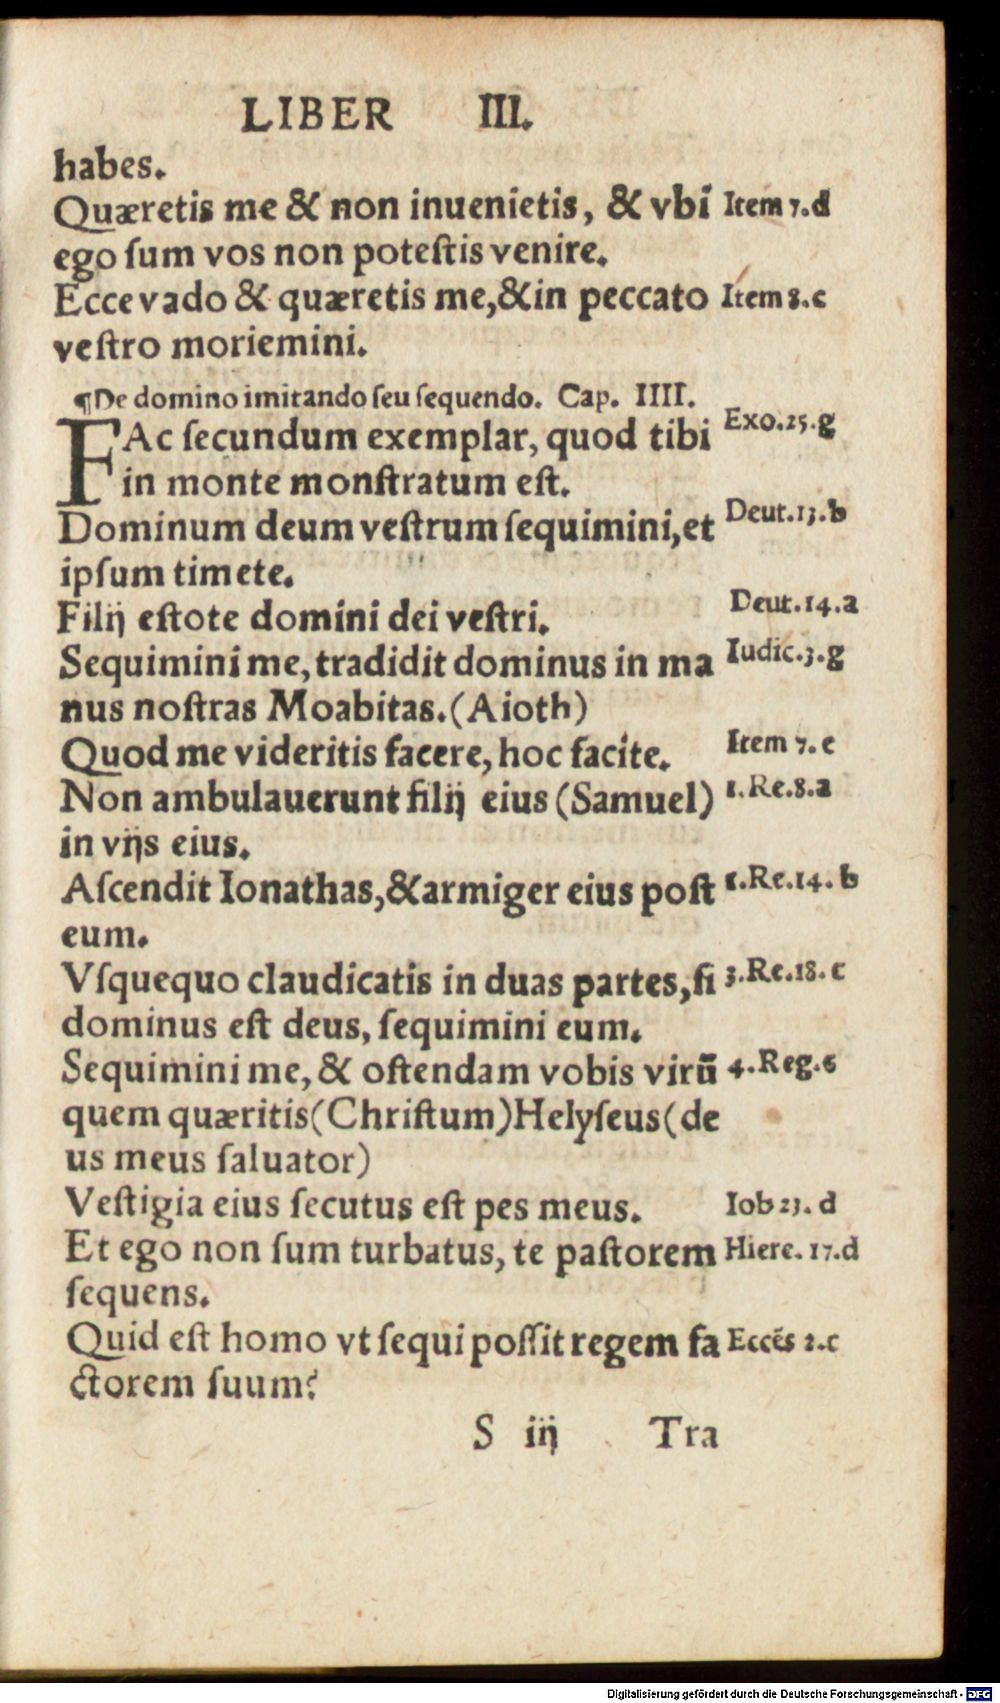 LIBER III.
habes.
Quæretis me & non inuenietis, & vbi Item 7.d
ego ſum vos non poteſtis venire.
Ecce vado & quæretis me,& in peccato Item 8.c
veſtro moriemini.
¶De domino imitando ſeu ſequendo. Cap. IIII.
FAc ſecundum exemplar, quod tibi Exo.25.g
in monte monſtratum eſt.
Dominum deum veſtrum ſequimini,et Deut.13.b
ipſum timete.
Filij eſtote domini dei veſtri. Deut.14.a
Sequimini me, tradidit dominus in ma Iudic.3.g
nus noſtras Moabitas.(Aioth)
Quod me videritis facere, hoc facite. Item 7.e
Non ambulauerunt filij eius (Samuel) 1.Re.8.a
in vijs eius.
Aſcendit Ionathas,& armiger eius poſt 1.Re.14.b
eum.
Vſquequo claudicatis in duas partes,ſi 3.Re.18.c
dominus eſt deus, ſequimini eum.
Sequimini me, & oſtendam vobis virū 4.Reg.6
quem quæritis(Chriſtum)Helyſeus(de
us meus ſaluator)
Veſtigia eius ſecutus eſt pes meus. Iob 23.d
Et ego non ſum turbatus, te paſtorem Hiere.17.d
ſequens.
Quid eſt homo vt ſequi poſſit regem fa Eccēs 2.c
ctorem ſuum?
S iij Tra
Digitalisierung gefördert durch die Deutsche Forschungsgemeinschaft - DFG